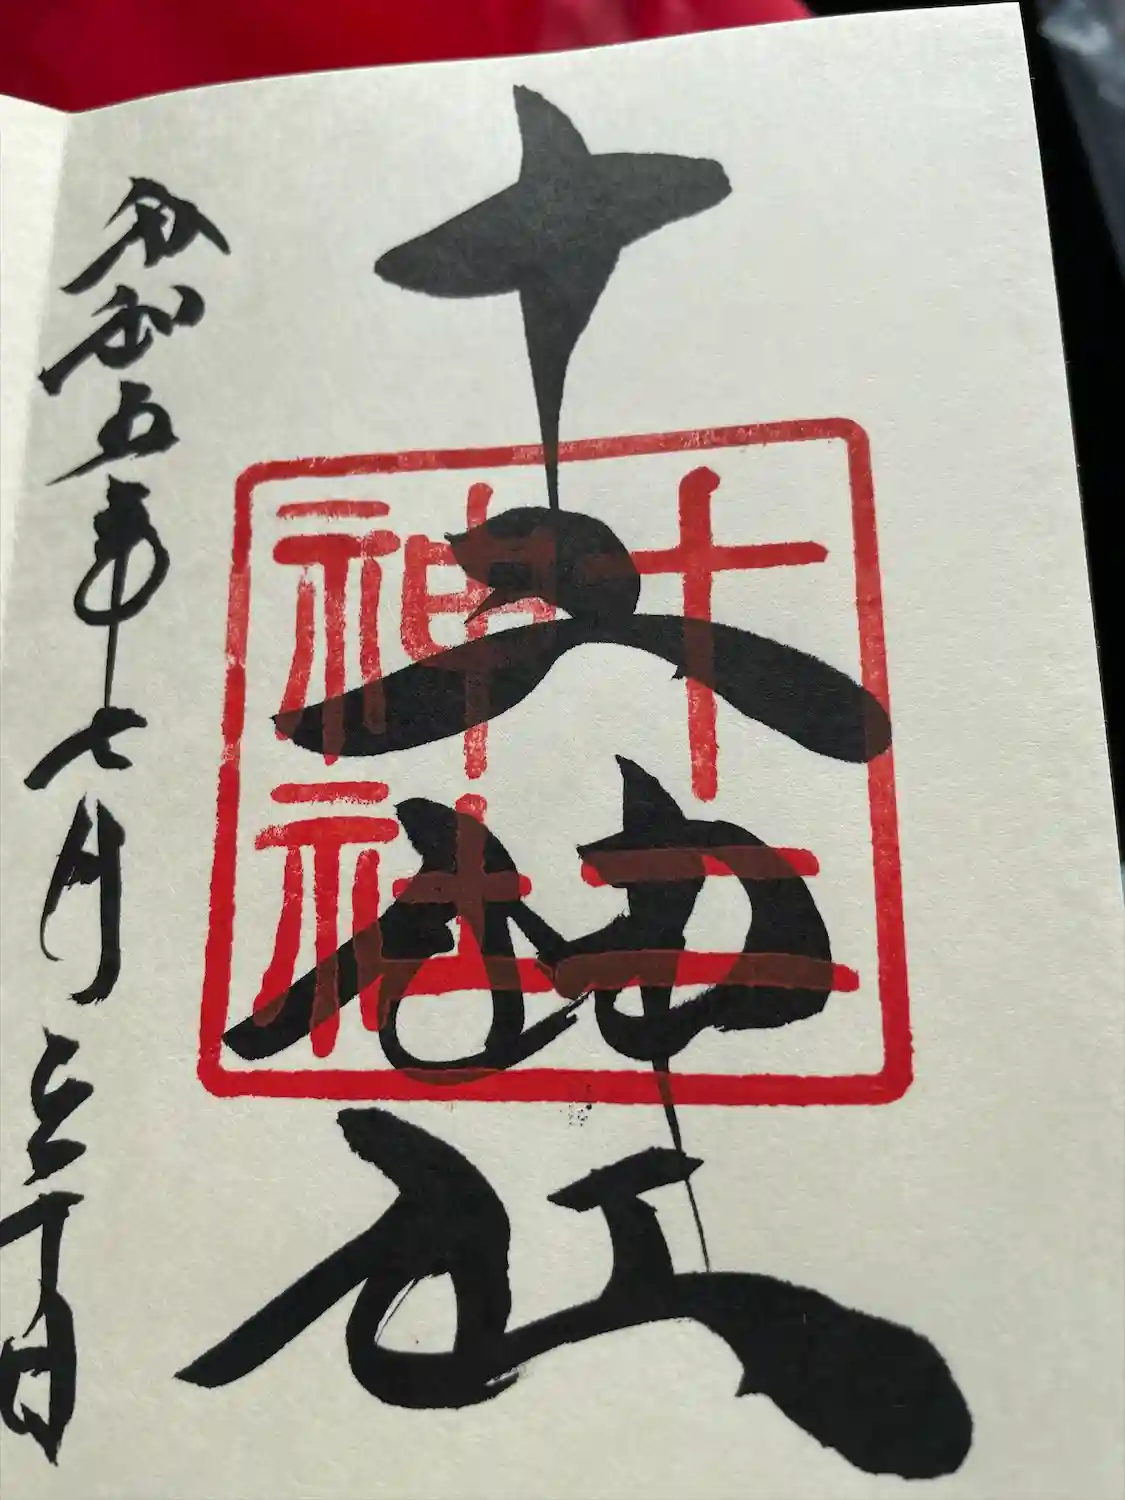 十二神社
十二
神社
令和五年七月三十日